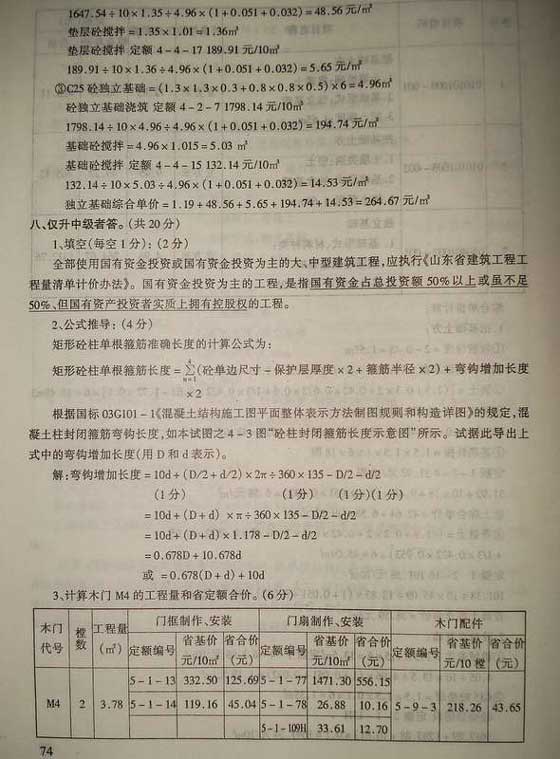 1647.54÷10×1.35÷4.96×(1+0.051+0.032)=48.56元/m³
垫层砼搅拌=1.35×1.01=1.36m³
垫层砼搅拌 定额4-4-17 189.91元/10m³
189.91÷10×1.36÷4.96×(1+0.051+0.032)=5.65元/m³
③C25砼独立基础=(1.3×1.3×0.3+0.8×0.8×0.5)×6=4.96m³
砼独立基础浇筑 定额4-2-7 1798.14元/10m³
1798.14÷10×4.96÷4.96×(1+0.051+0.032)=194.74元/m³
基础砼搅拌=4.96×1.015=5.03 m³
基础砼搅拌 定额4-4-15 132.14元/10m³
132.14÷10×5.03÷4.96×(1+0.051+0.032)=14.53元/m³
独立基础综合单价=1.19+48.56+5.65+194.74+14.53=264.67元/m³
八、仅升中级者答。(共20分)
1、填空(每空1分):(2分)
全部使用国有资金投资或国有资金投资为主的大、中型建筑工程,应执行《山东省建筑工程工
程量清单计价办法》。国有资金投资为主的工程,是指国有资金占总投资额50%以上或虽不足
50%,但国有资产投资者实质上拥有控股权的工程。
2、公式推导:(4分)
矩形砼柱单根箍筋准确长度的计算公式为:
矩形砼柱单根箍筋长度=4∑n=1(砼单边尺寸-保护层厚度×2+箍筋半径×2)+弯钩增加长度
×2
根据国标03G101-1《混凝土结构施工图平面整体表示方法制图规则和构造详图》的规定,混
凝土柱封闭箍筋弯钩长度,如本试图之4-3图“砼柱封闭箍筋长度示意图”所示。试据此导出上
式中的弯钩增加长度(用D和d表示)。
解:弯钩增加长度=10d+(D/2+d/2)×2π÷360×135-D/2-d/2
(1分) (1分) (1分)(1分)
=10d+(D+d)×π÷360×135-D/2-d/2
=10d+(D+d)×1.178-D/2-d/2
=0.678D+10.678d
或 =0.678(D+d)+10d
3、计算木门M4的工程量和省定额合价。(6分)
木门代号 樘数 工程量(㎡) 门框制作、安装 门扇制作、安装 木门配件
定额编号 省基价元/10㎡ 省合价(元) 定额编号 省基价元/10㎡ 省合价(元) 定额编号 省基价元/10樘 省合价(元)
5-1-13 332.50 125.69 5-1-77 1471.30 556.15
M4 2 3.78 5-1-14 119.16 45.04 5-1-78 26.88 10.16 5-9-3 218.26 43.65
5-1-109H 33.61 12.70
74